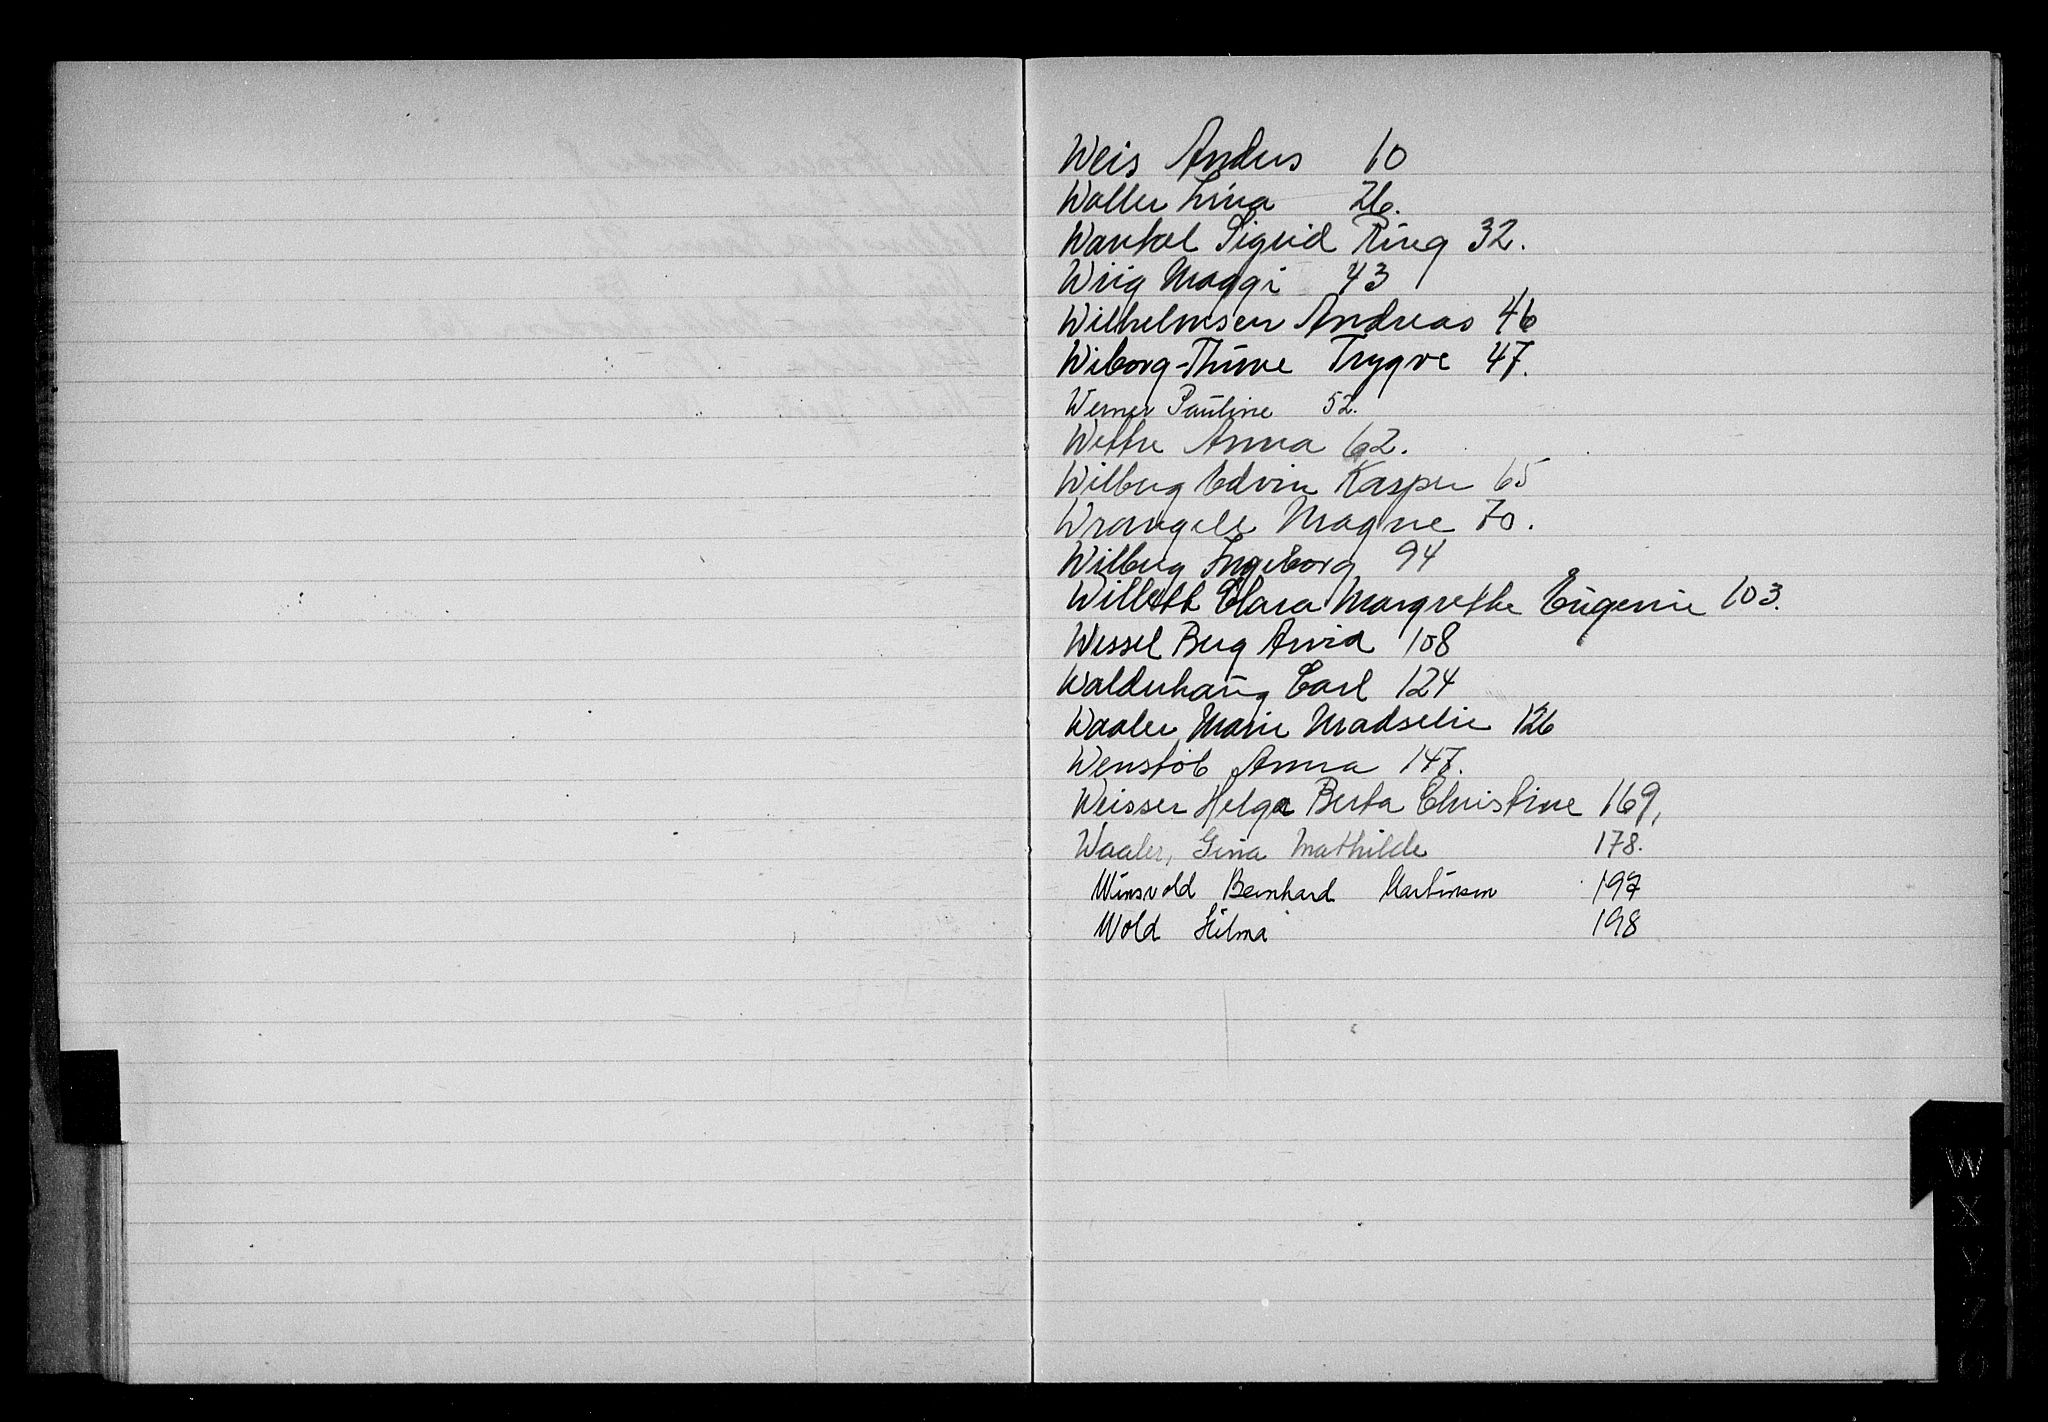 Weis Anders 10
Waller Lina 26.
Wankel Sigrid Ring 32.
Wiig Maggi 43
Wilhelmsen Andreas 46
Wiborg-Thune Trygve 47.
Werner Pauline 52.
Wettre Anna 62.
Wilberg Edvin Kasper 65
Wrangell Magne 70.
Wilberg Ingeborg 94
Willett Clara Margrethe Eugenie 103.
Wessel Berg Arvid 108
Walderhaug Carl 124
Waaler Marie Madselie 126
Wenstöb Anna 147.
Weisser Helga Berta Christine 169,
Waaler, Gina Mathilde 178.
Winsvold Bernhard Martinsen 197
Wold Hilma 198
W
X
Y
Z